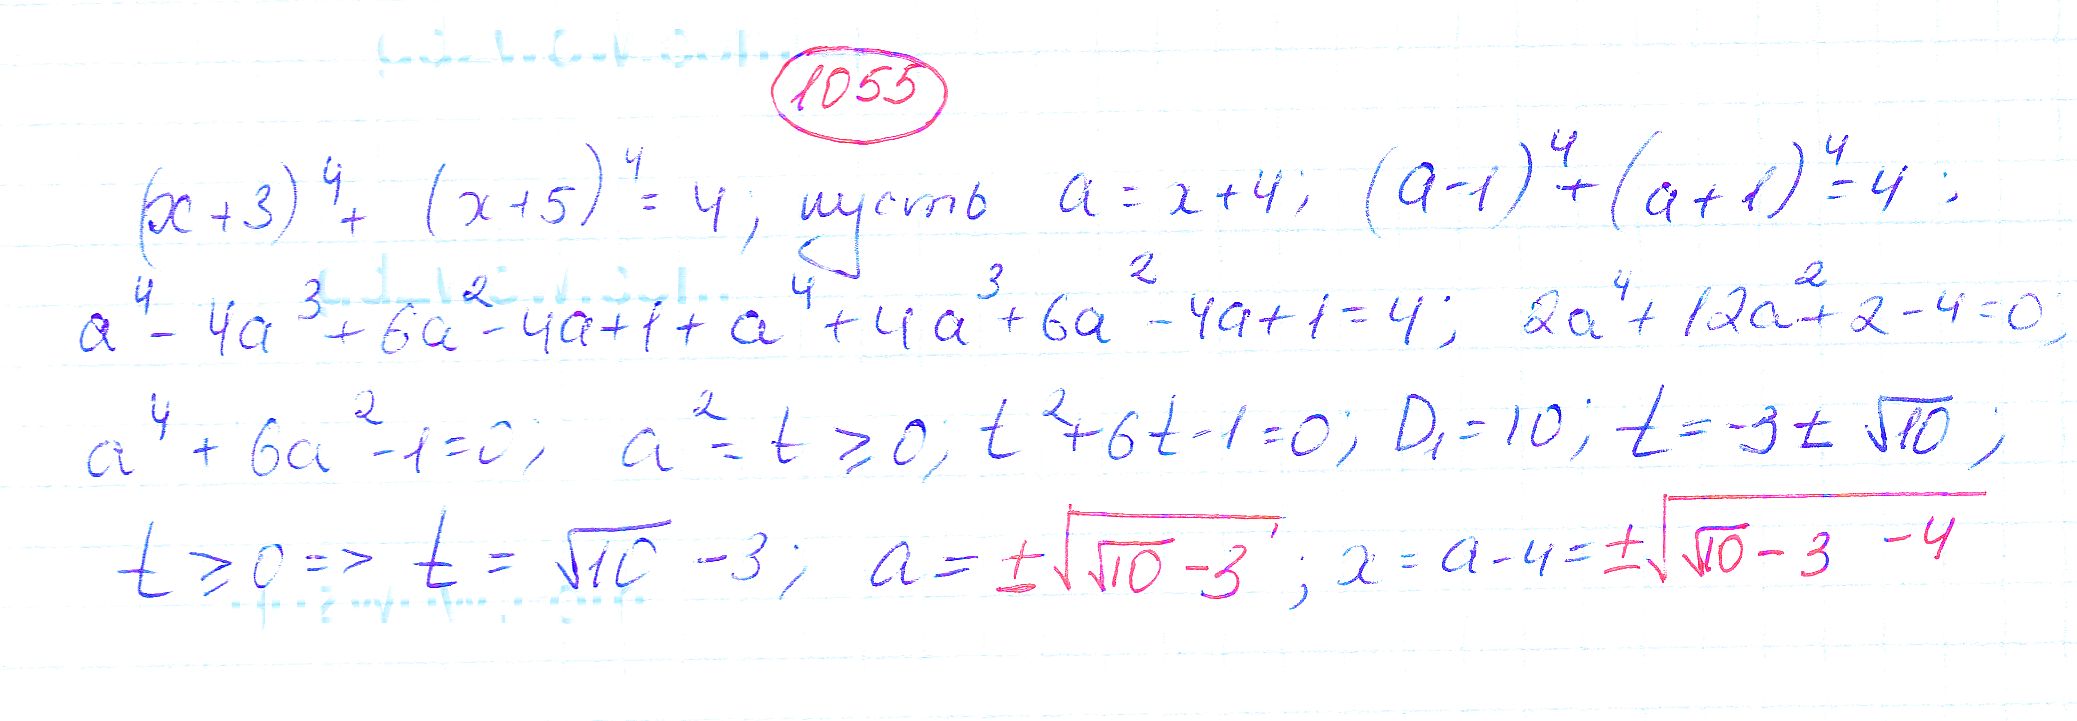 1055
(x+3)⁴ + (x+5)⁴ = 4; пусть a = x+4; (a-1)⁴ + (a+1)⁴ = 4;
a⁴ - 4a³ + 6a² - 4a + 1 + a⁴ + 4a³ + 6a² - 4a + 1 = 4; 2a⁴ + 12a² + 2 - 4 = 0;
a⁴ + 6a² - 1 = 0; a² = t ≥ 0; t² + 6t - 1 = 0; D₁ = 10; t = -3 ± √10;
t ≥ 0 => t = √10 - 3; a = ±√(√10 - 3); x = a - 4 = ±√(√10 - 3 - 4)